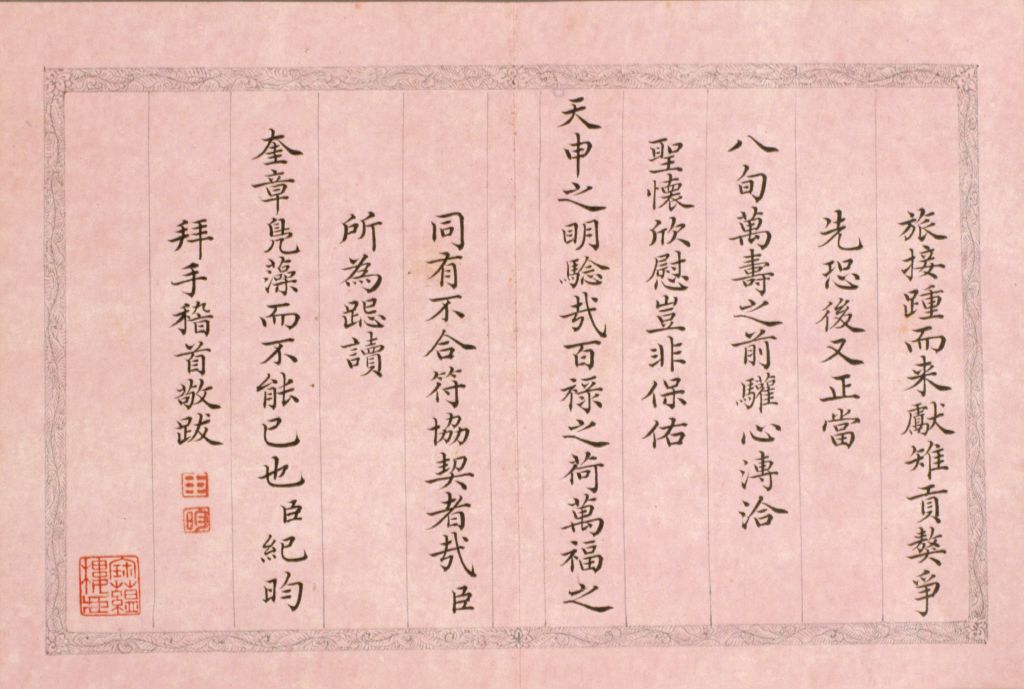 旅接踵而来獻雉貢獒爭
先恐後又正當
八旬萬壽之前驩心溥洽
聖懷欣慰豈非保佑
天申之眀驗哉百祿之荷萬福之
同有不合符協契者哉臣
所為跽讀
奎章鳧藻而不能已也臣紀昀
拜手稽首敬跋
臣
昀